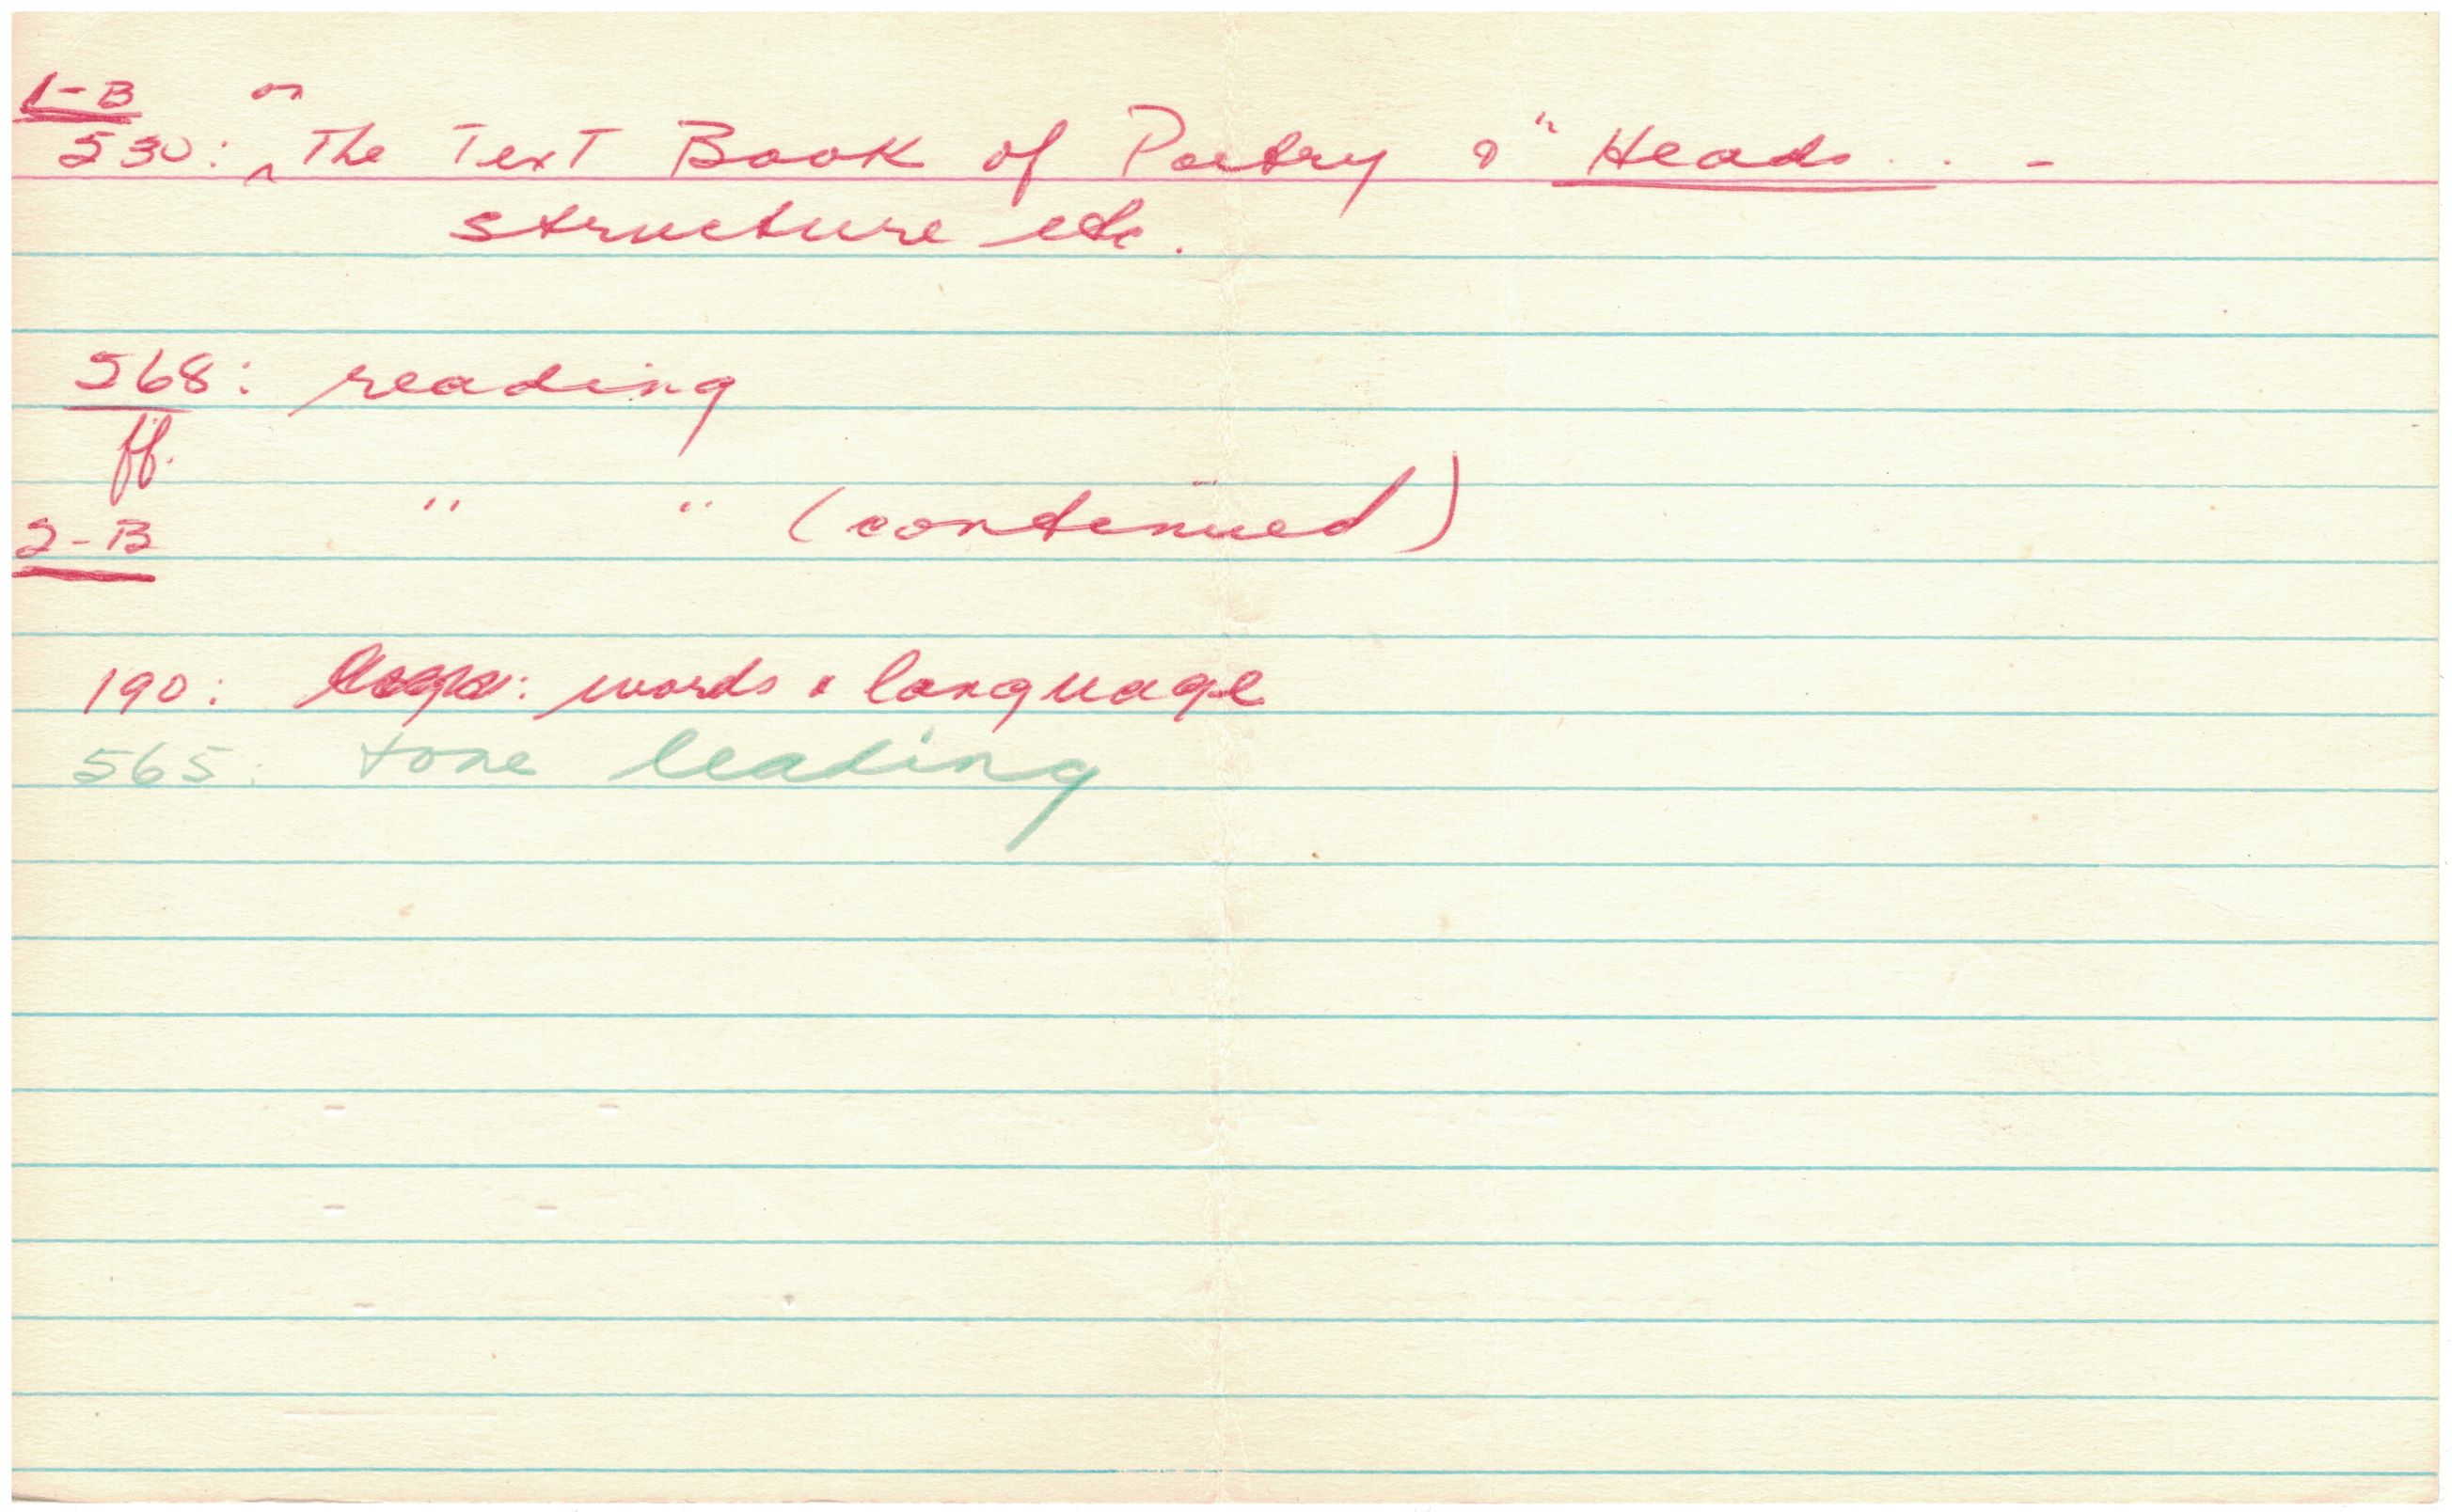 1-B
530: on The Text Book of Poetry & "Heads . . -
structure etc.
568: reading
ff.
2-B " " (continued)
190: words & language
565: tone leading